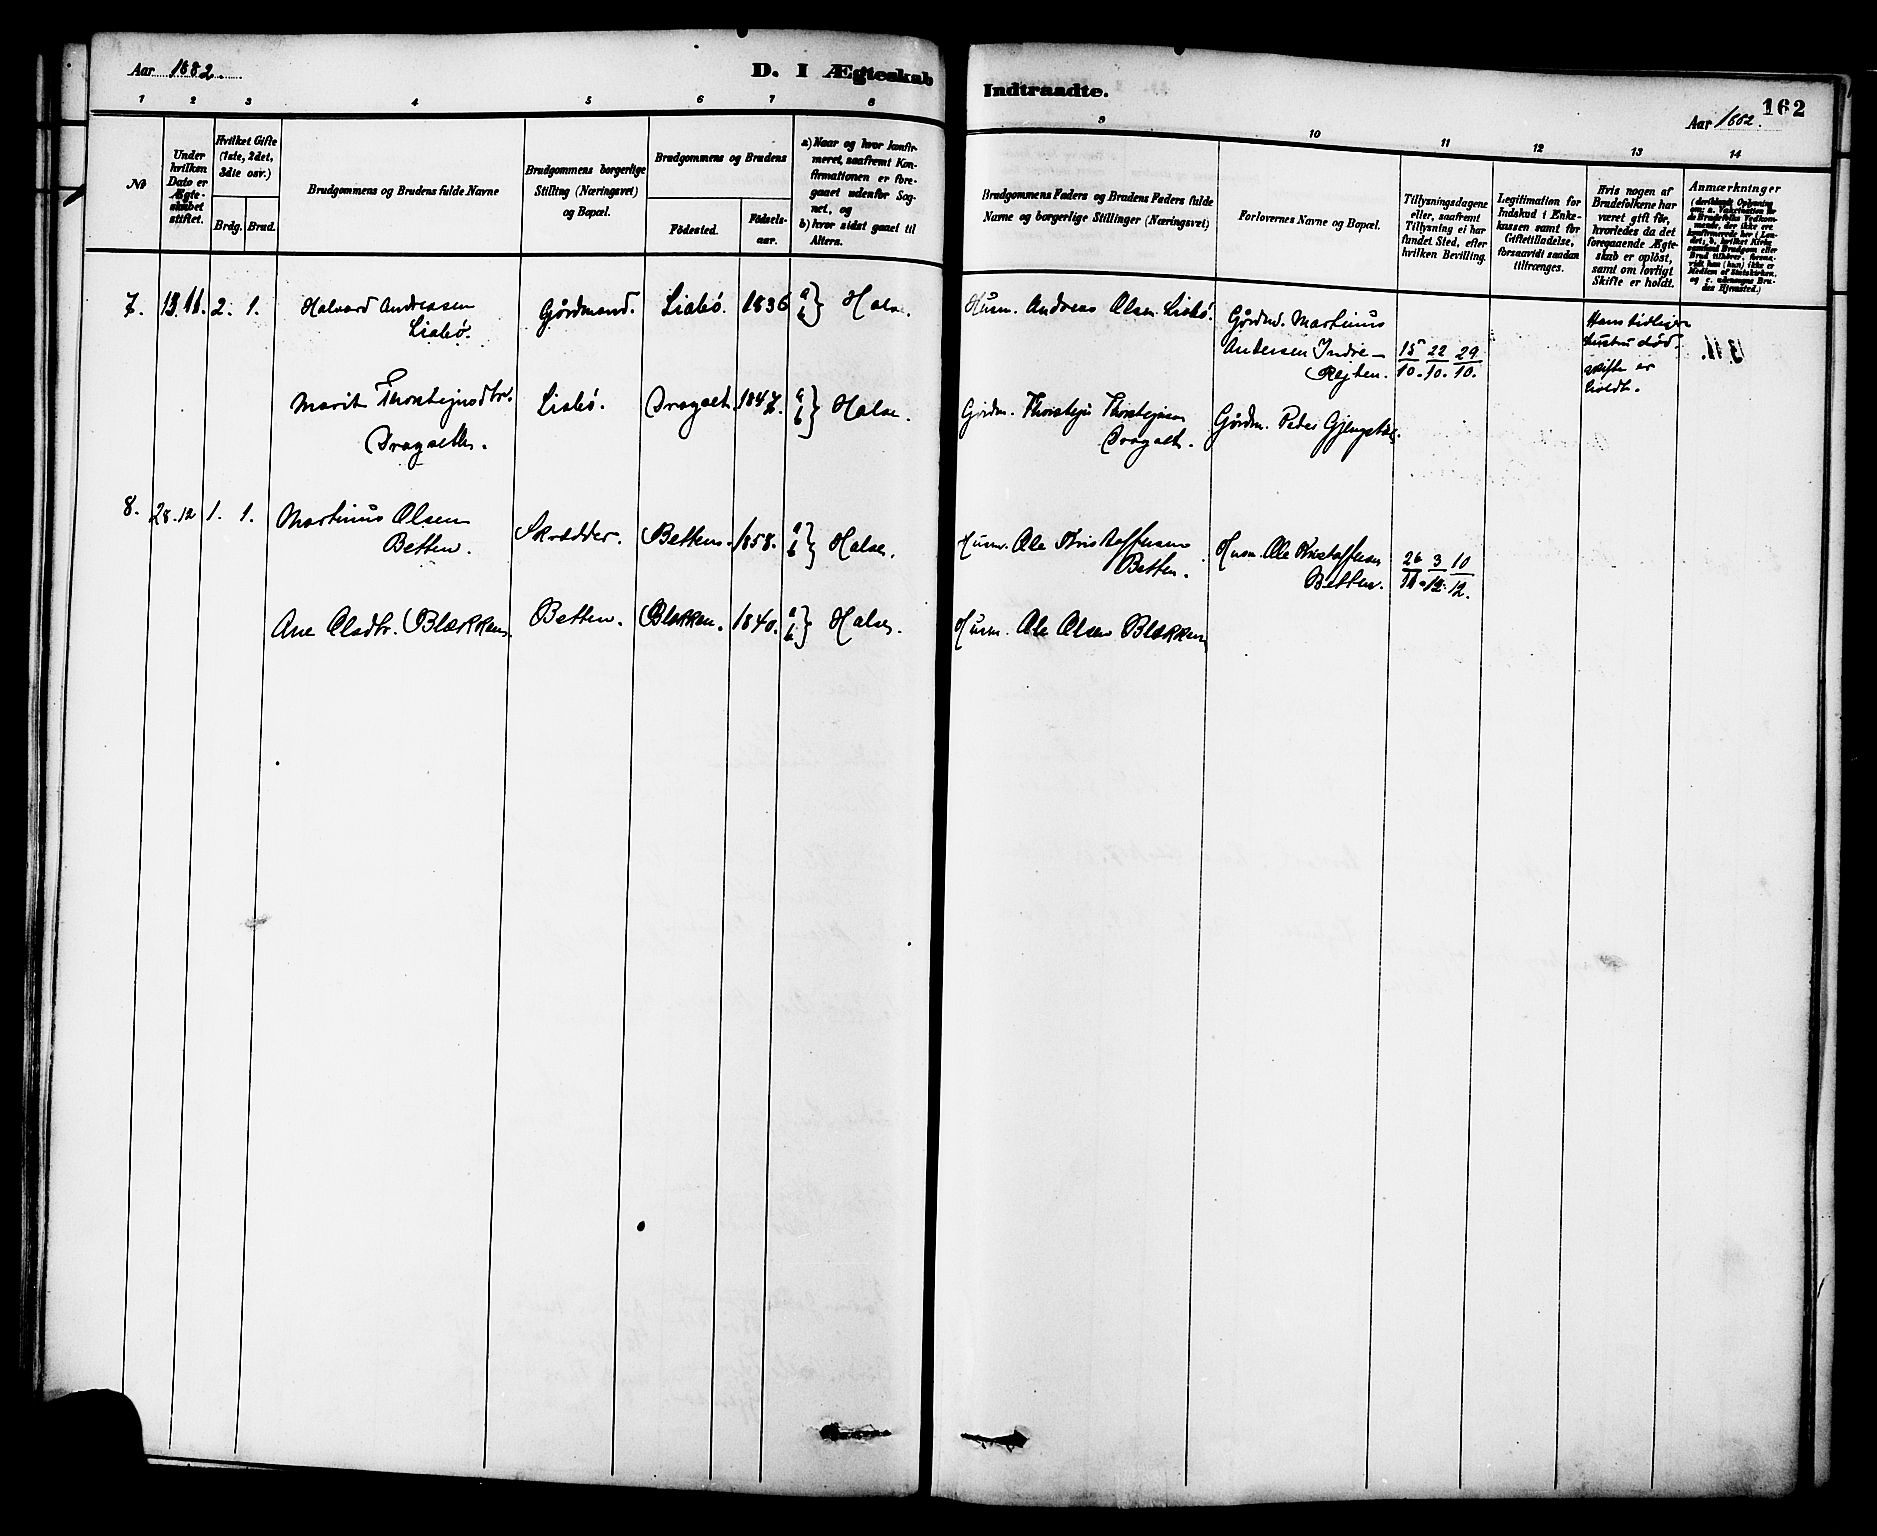 Aar 1882.
D. I Ægteskab
Indtraadte.
Aar 1882.
162
1 2 3 4 5 6 7 8 9 10 11 12 13 14
No
Under hvilken Dato er Ægteskabet stiftet.
Hvilket Gifte (1ste, 2det, 3die osv.)
Brdg. Brud.
Brudgommens og Brudens fulde Navne
Brudgommens borgerlige Stilling (Næringsvei) og Bopæl.
Brudgommens og Brudens
Födested.
Födselsaar.
a) Naar og hvor konfirmeret, saafremt Konfirmationen er foregaaet udenfor Sognet, og
b) hvor sidst gaaet til Alters.
Brudgommens Faders og Brudens Faders fulde Navne og borgerlige Stillinger (Næringsvei)
Forlovernes Navne og Bopæl.
Tillysningsdagene eller, saafremt Tillysning ei har fundet Sted, efter hvilken Bevilling.
Legitimation for Indskud i Enkekassen samt for Giftetilladelse, forsaavidt saadan tiltrænges.
Hvis nogen af Brudefolkene har været gift før, hvorledes da det foregaaende Ægteskab er oplöst, samt om lovligt Skifte er holdt.
Anmærkninger
7. 13.11. 2. 1. Halvard Andressen Gårdmand. Liabø. 1836 a b } Halse. Husm. Andreas Olsen Liabø. Gårdm. Martinus Hans tidligere
Liabø. Andersen Indre- 15 22 29 hustru død. 13/11.
Rejten. 10. 10. 10. skifte er
holdt.
Marit Thorstejnsdtr. Liabø. Dragset. 1847. a b } Halse. Gårdm. Thorstejn Thorstejnsen Gårdm. Peder Gjengstø.
Dragseth. Dragset.
8. 28.12 1. 1. Martinus Olsen Skrædder. Betten. 1858. a b } Halse. Husm. Ole Kristoffersen Husm. Ole Kristoffersen 26 3 10
Betten. Betten. Betten. 11. 12. 12.
Ane Olsdtr. Blækken. Betten. Blækken. 1840. a b } Halse. Husm. Ole Olsen Blækken